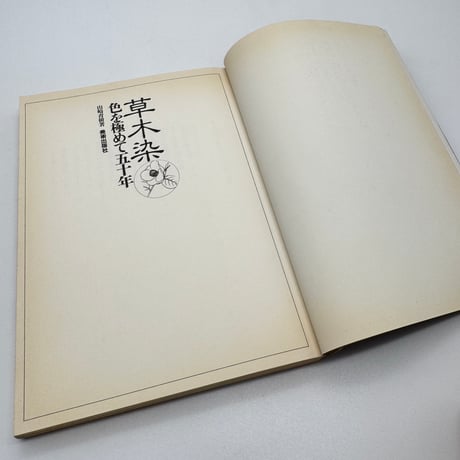 草木染
色を極めて五十年
山崎青樹著
美術出版社